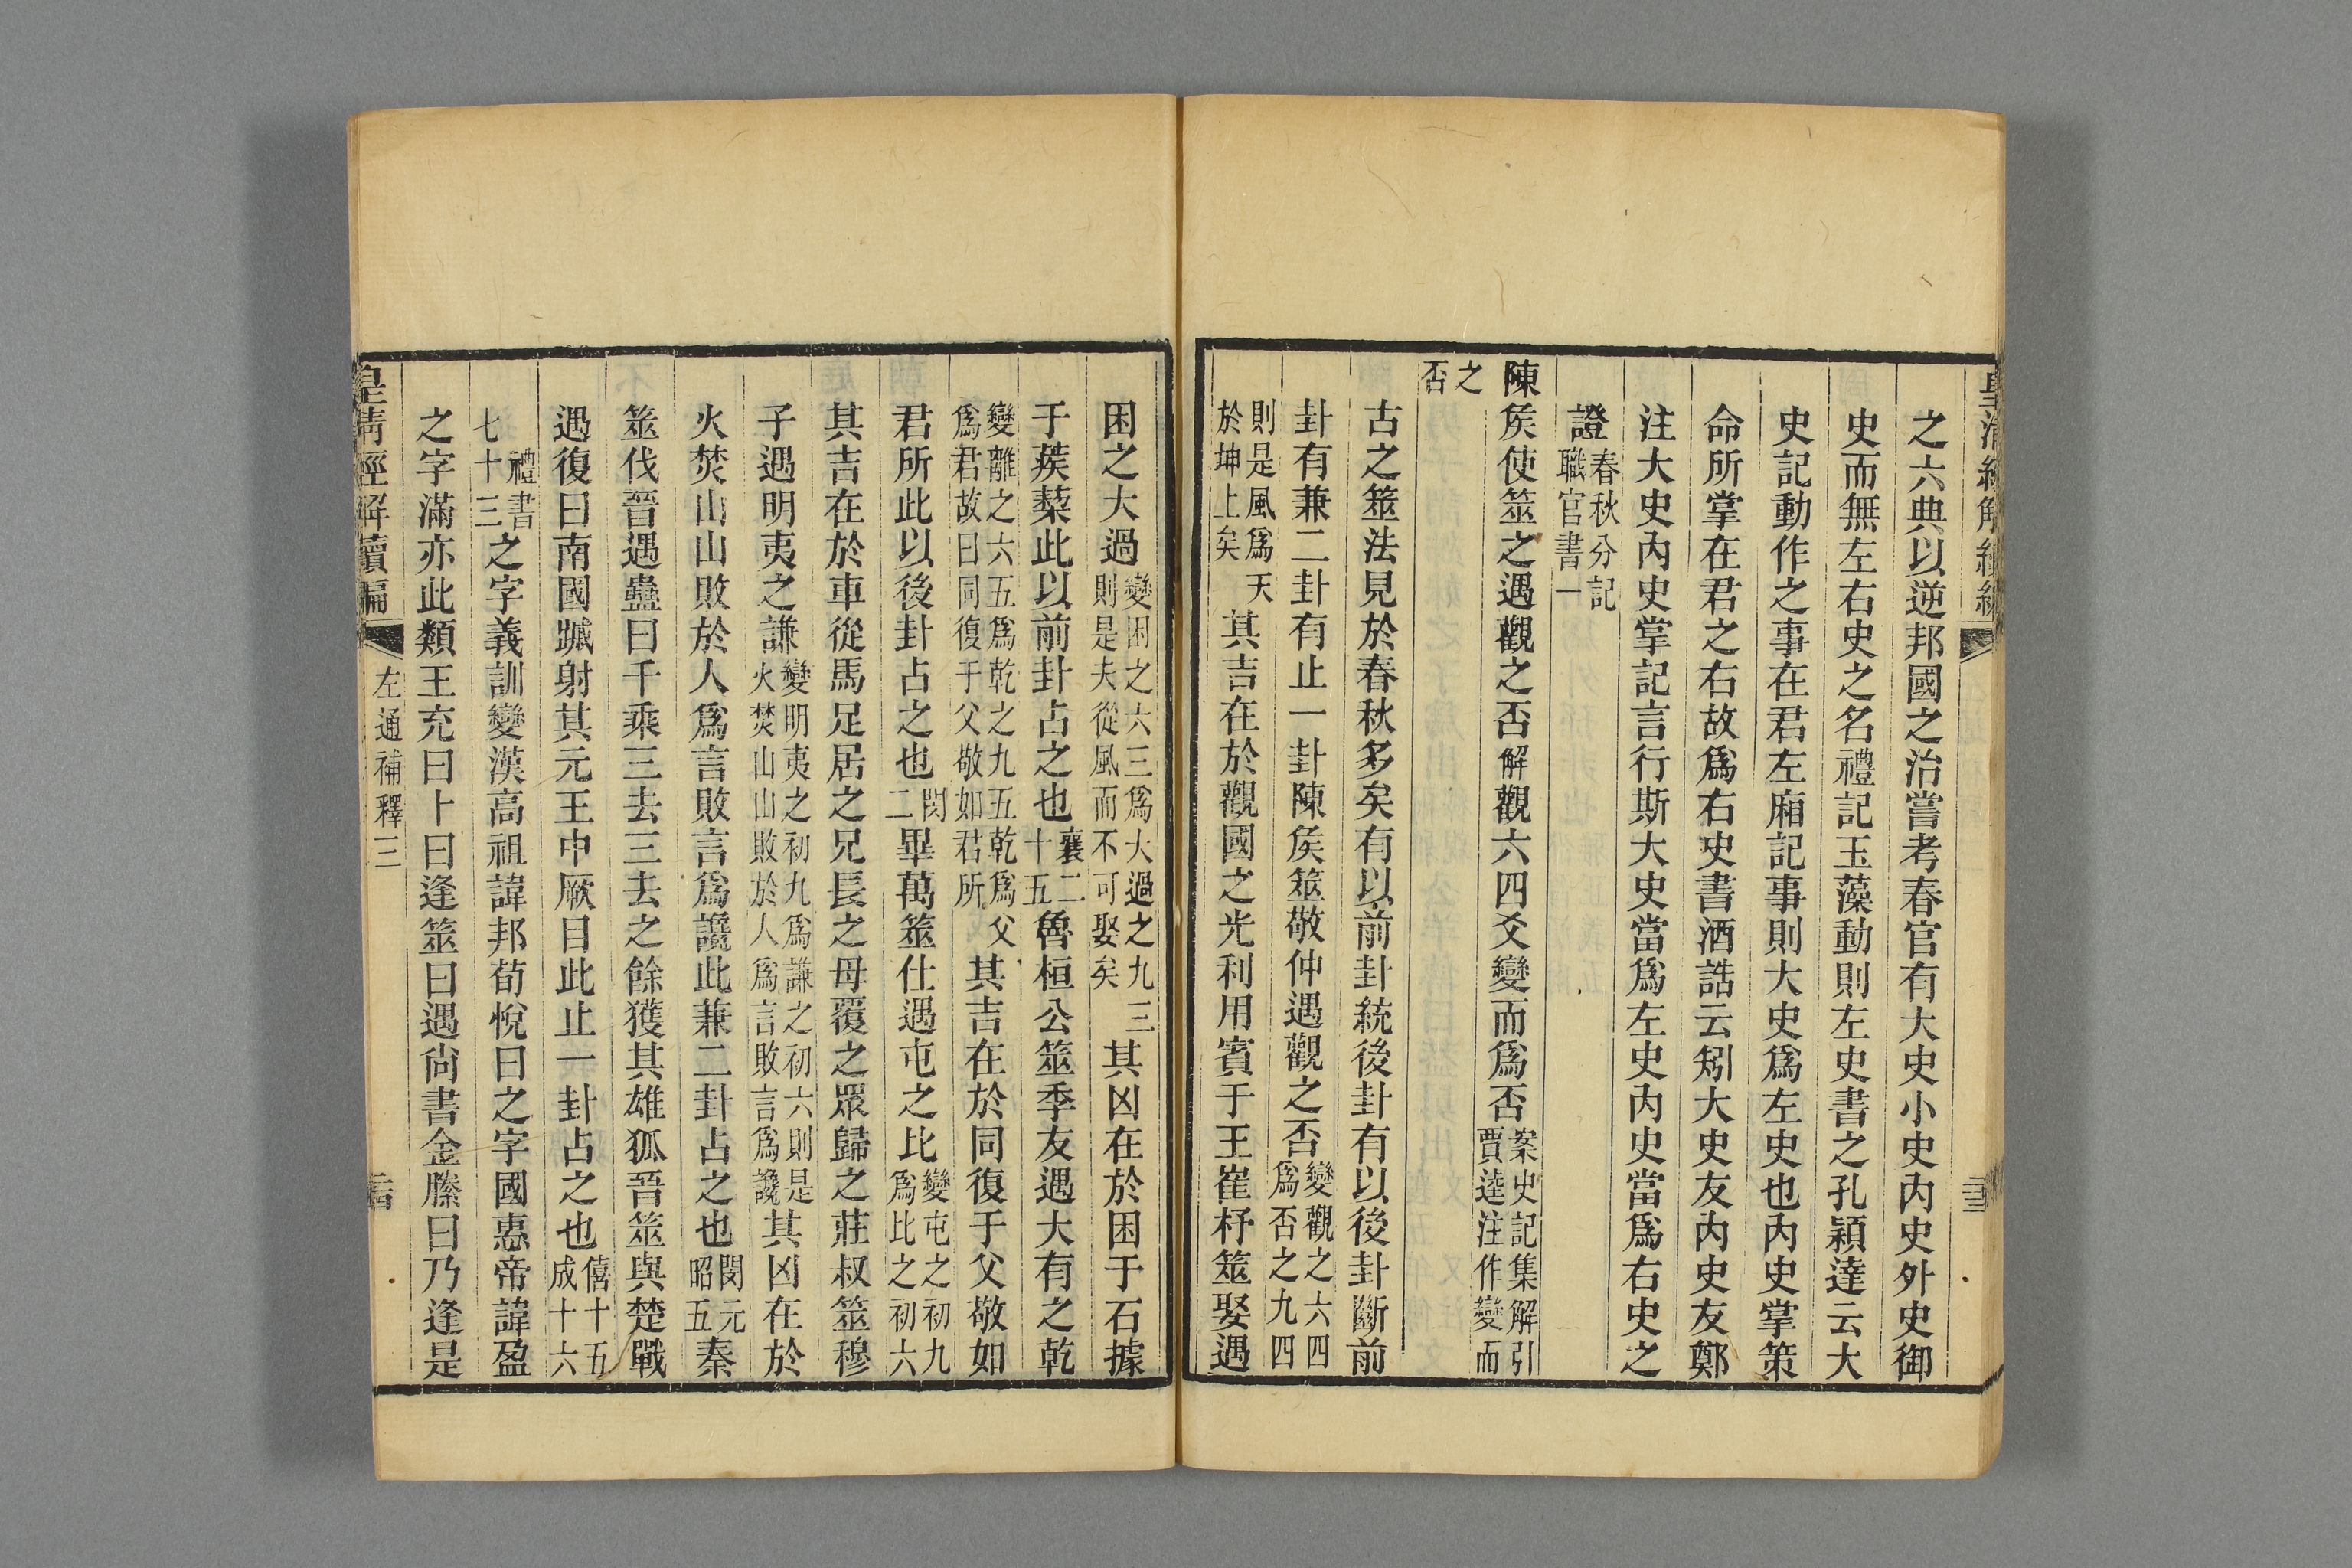 皇清經解續編
之六典以逆邦國之治嘗考春官有大史小史内史外史御
史而無左右史之名禮記玉藻動則左史書之孔穎達云大
史記動作之事在君左廂記事則大史爲左史也内史掌策
命所掌在君之右故爲右史書酒誥云矧大史友内史友鄭
注大史内史掌記言行斯大史當爲左史内史當爲右史之
證春秋分記
職官書一
陳矦使筮之遇觀之否解觀六四爻變而爲否案史記集解引
賈逵注作變而
之
否
古之筮法見於春秋多矣有以前卦統後卦有以後卦斷前
卦有兼二卦有止一卦陳矦筮敬仲遇觀之否變觀之六四
爲否之九四
則是風爲天
於坤上矣其吉在於觀國之光利用賓于王崔杼筮娶遇
困之大過變困之六三爲大過之九三
則是夫從風而不可娶矣其凶在於困于石據
于蒺藜此以前卦占之也襄二
十五魯桓公筮季友遇大有之乾
變離之六五爲乾之九五乾爲父
爲君故曰同復于父敬如君所其吉在於同復于父敬如
君所此以後卦占之也閔
二畢萬筮仕遇屯之比變屯之初九
爲比之初六
其吉在於車從馬足居之兄長之母覆之眾歸之莊叔筮穆
子遇明夷之謙變明夷之初九爲謙之初六則是
火焚山山敗於人爲言敗言爲讒其凶在於
火焚山山敗於人爲言敗言爲讒此兼二卦占之也閔元
昭五秦
筮伐晉遇蠱曰千乘三去三去之餘獲其雄狐晉筮與楚戰
遇復曰南國蹴射其元王中厥目此止一卦占之也僖十五
成十六
禮書
七十三之字義訓變漢高祖諱邦荀悅曰之字國惠帝諱盈
之字滿亦此類王充曰卜曰逢筮曰遇尙書金縢曰乃逢是
皇清經解續編
左通補釋三